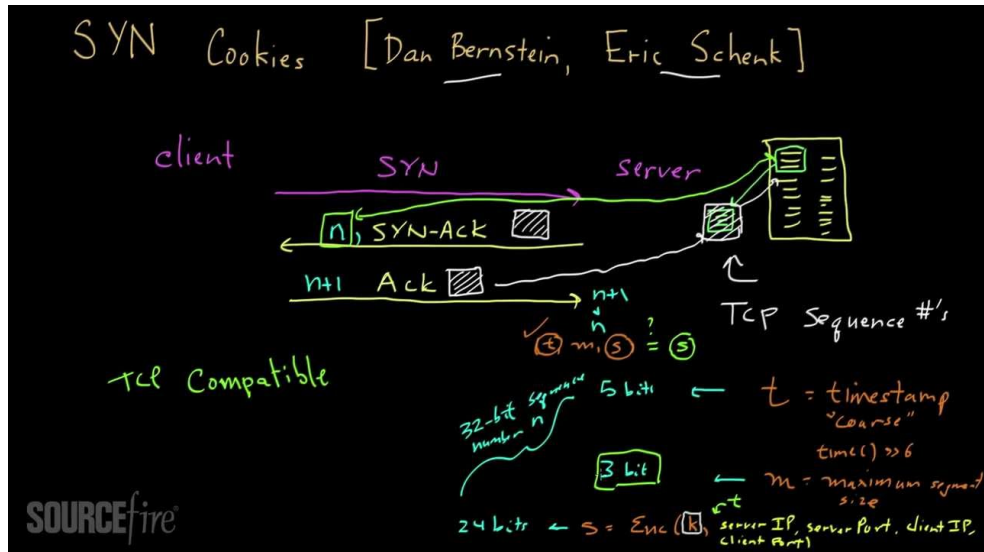 SYN Cookies [Dan Bernstein, Eric Schenk]
client
SYN
server
n, SYN-Ack
n+1 Ack
n+1
n
TCP Sequence #'s
✓ t, m, s ?= s
TCP Compatible
32-bit sequence
number n
5 bits ← t = timestamp
"coarse"
time() >> 6
3 bit ← m = maximum segment
size
t
24 bits ← s = Enc (k, server IP, server Port, client IP,
client Port)
SOURCEfire